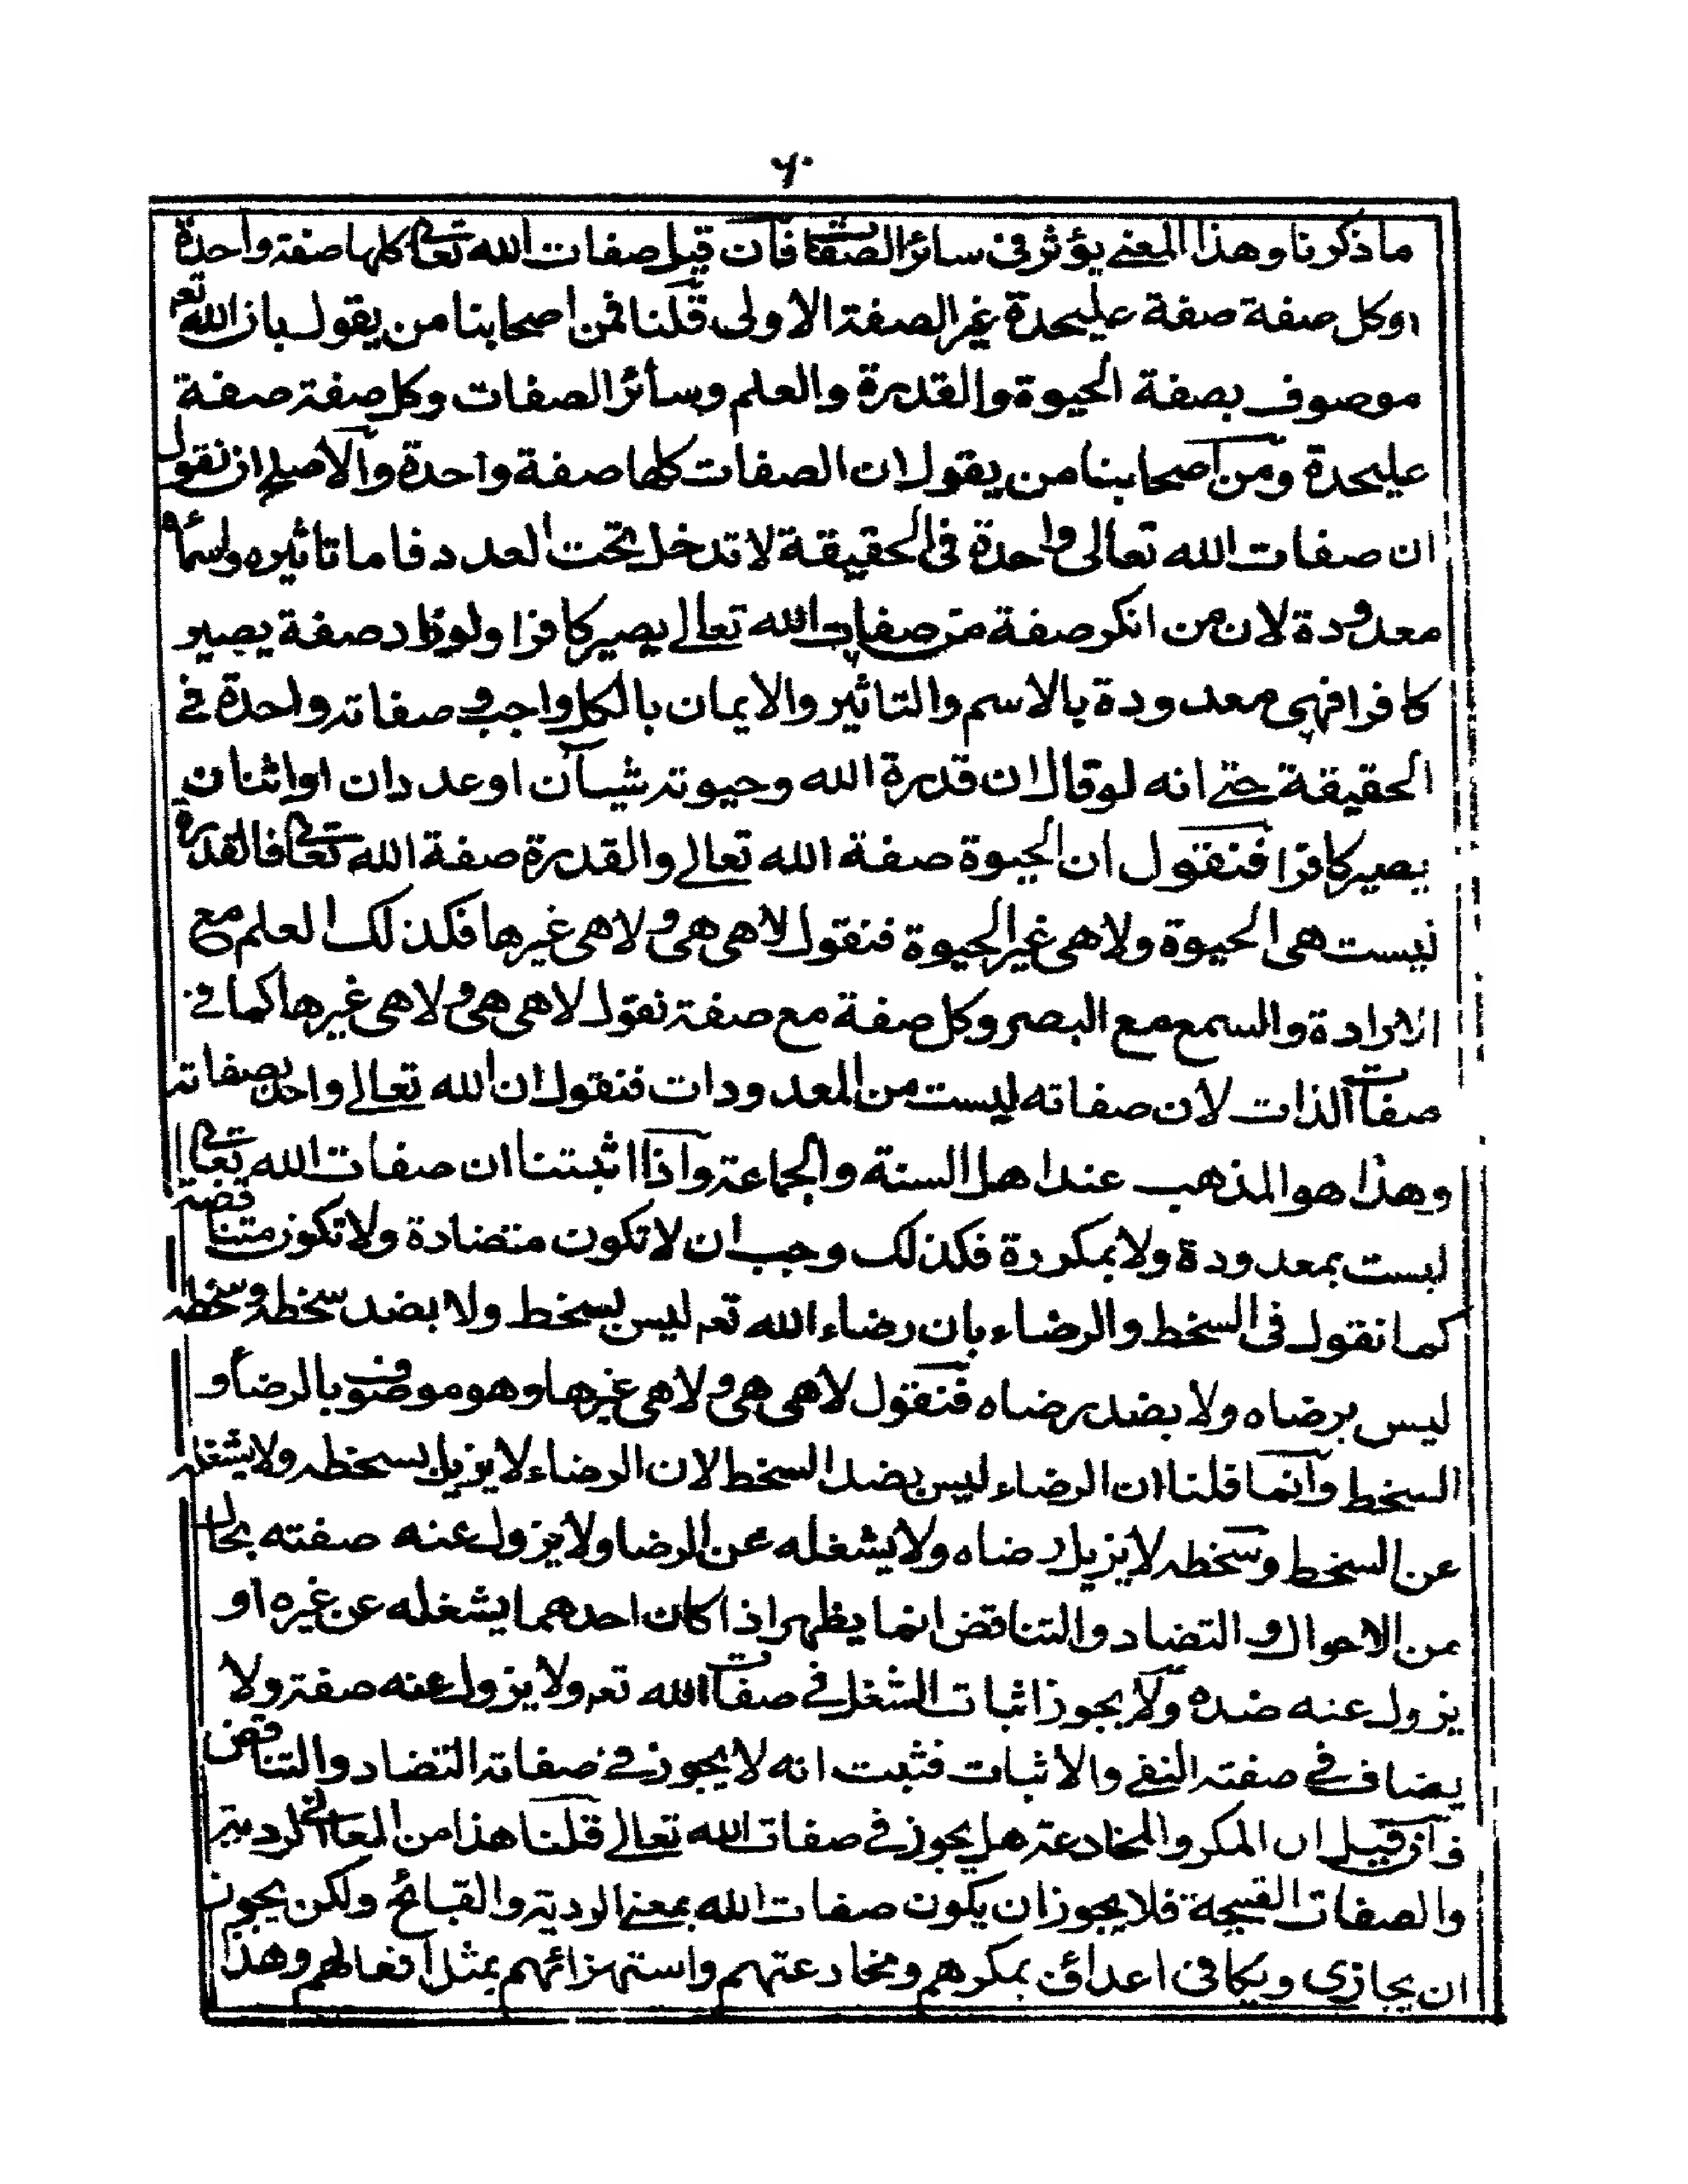 ٦٠
ما ذكرنا وهذا المعنے يؤثر فى سائر الصفات فان قيل صفات الله تعالے كلها صفة واحدة
او كل صفة صفة عليحدة غير الصفة الاولى قلنا فمن اصحابنا من يقول بان الله تعہ
موصوف بصفة الحيوة والقدرة والعلم وسائر الصفات وكل صفة صفة
عليحدة ومن اصحابنا من يقول ان الصفات كلها صفة واحدة والاصلح ان نقول
ان صفات الله تعالى واحدة فى الحقيقة لا تدخل تحت العدد فاما تاثيره واسماؤه
معدودة لان من انكر صفة من صفات الله تعالے يصير كافرا ولو زاد صفة يصير
كافرا فهى معدودة بالاسم والتاثير والايمان بالكل واجب وصفاته واحدة فے
الحقيقة حتے انه لو قال ان قدرة الله وحيوته شيآن او عددان او اثنان
يصير كافرا فنقول ان الحيوة صفة الله تعالے والقدرة صفة الله تعالے فالقدرة
ليست هى الحيوة ولا هى غير الحيوة فنقول لا هى هى ولا هى غيرها فكذلك العلم مع
الارادة والسمع مع البصر وكل صفة مع صفة نقول لا هى هى ولا هى غيرها كما فے
صفات الذات لان صفاته ليست من المعدودات فنقول ان الله تعالے واحد بصفاته
وهذا هو المذهب عند اهل السنة والجماعة واذا اثبتنا ان صفات الله تعالے
ليست بمعدودة ولا بمكررة فكذلك وجب ان لا تكون متضادة ولا تكون متناقضة
كما نقول فى السخط والرضاء بان رضاء الله تعہ ليس بسخط ولا بضد سخطه وسخطه
ليس برضاه ولا بضد رضاه فنقول لا هى هى ولا هى غيرها وهو موصوف بالرضا و
السخط وانما قلنا ان الرضاء ليس بضد السخط لان الرضاء لا يزيل سخطه ولا يشغله
عن السخط وسخطه لا يزيل رضاه ولا يشغله عن الرضا ولا يزول عنه صفته بحال
من الاحوال والتضاد والتناقض انما يظهر اذا كان احدهما يشغله عن غيره او
يزول عنه ضده ولا يجوز اثبات الشغل فے صفات الله تعہ ولا يزول عنه صفة ولا
يضاف فے صفته النفے والاثبات فثبت انه لا يجوز فے صفاته التضاد والتناقض
فان قيل ان المكر والمخادعة هل يجوز فے صفات الله تعالے قلنا هذا من المعانے الردية
والصفات القبيحة فلا يجوز ان يكون صفات الله بمعنے الردية والقبائح ولكن يجوز
ان يجازى ويكافى اعدائ بمكرهم ومخادعتهم واستهزائهم بمثل افعالهم وهذا